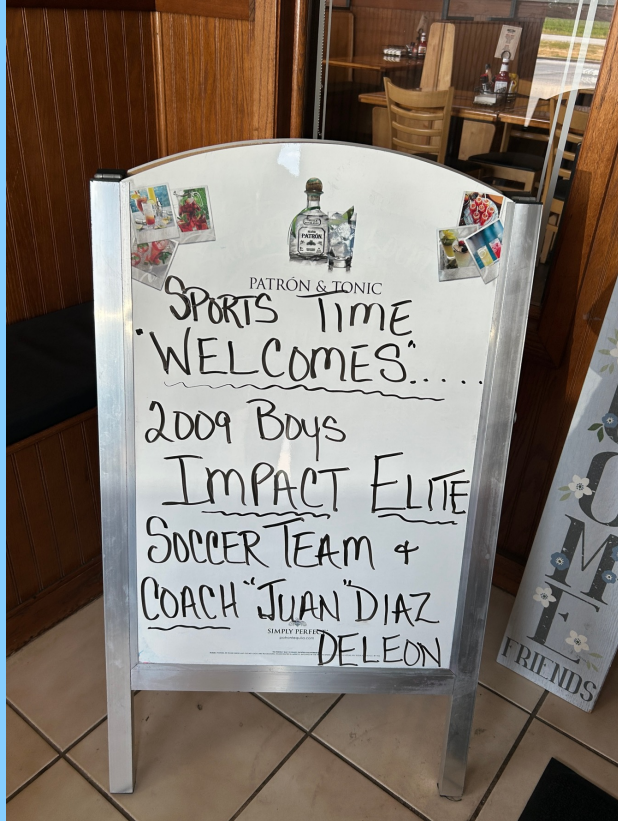 PATRÓN
PATRÓN & TONIC
SPORTS TIME
"WELCOMES".....
2009 BOYS
IMPACT ELITE
SOCCER TEAM &
COACH "JUAN" DIAZ
SIMPLY PERFEC
DELEON
OME
FRIENDS